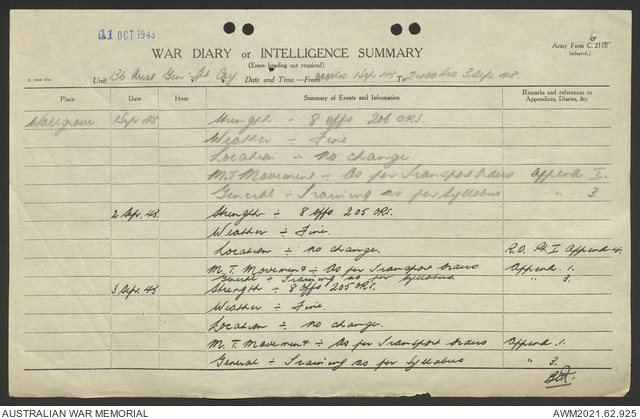 11 OCT 1943
WAR DIARY or INTELLIGENCE SUMMARY
(Erase heading not required).
Army Form C. 2118
(adapted.)
Unit 136 Aust Gen Tpt Coy Date and Time.—From 0001 hrs 1 Sep. 43 To 2400 hrs 3 Sep. 43.
Place Date Hour Summary of Events and Information Remarks and references to
Appendices, Diaries, &c.
Wallgrove 1 Sep. 43 Strength ÷ 8 offs 206 ORS.
Weather ÷ Fine
Location ÷ no change
M.T. Movement ÷ As per Transport Orders Append I.
General ÷ Training as per Syllabus " 3.
2 Sep. 43. Strength ÷ 8 offs 205 ORS.
Weather ÷ Fine.
Location ÷ no change. R.O. Pt I Append 4.
M.T. Movement ÷ As per Transport Orders Append. 1.
General ÷ Training as per Syllabus. " 3.
3 Sep. 43 Strength ÷ 8 offs 205 ORS.
Weather ÷ Fine.
Location ÷ no change.
M.T. Movement ÷ As per Transport Orders Append. 1.
General ÷ Training as per Syllabus " 3.
AUSTRALIAN WAR MEMORIAL AWM2021.62.925